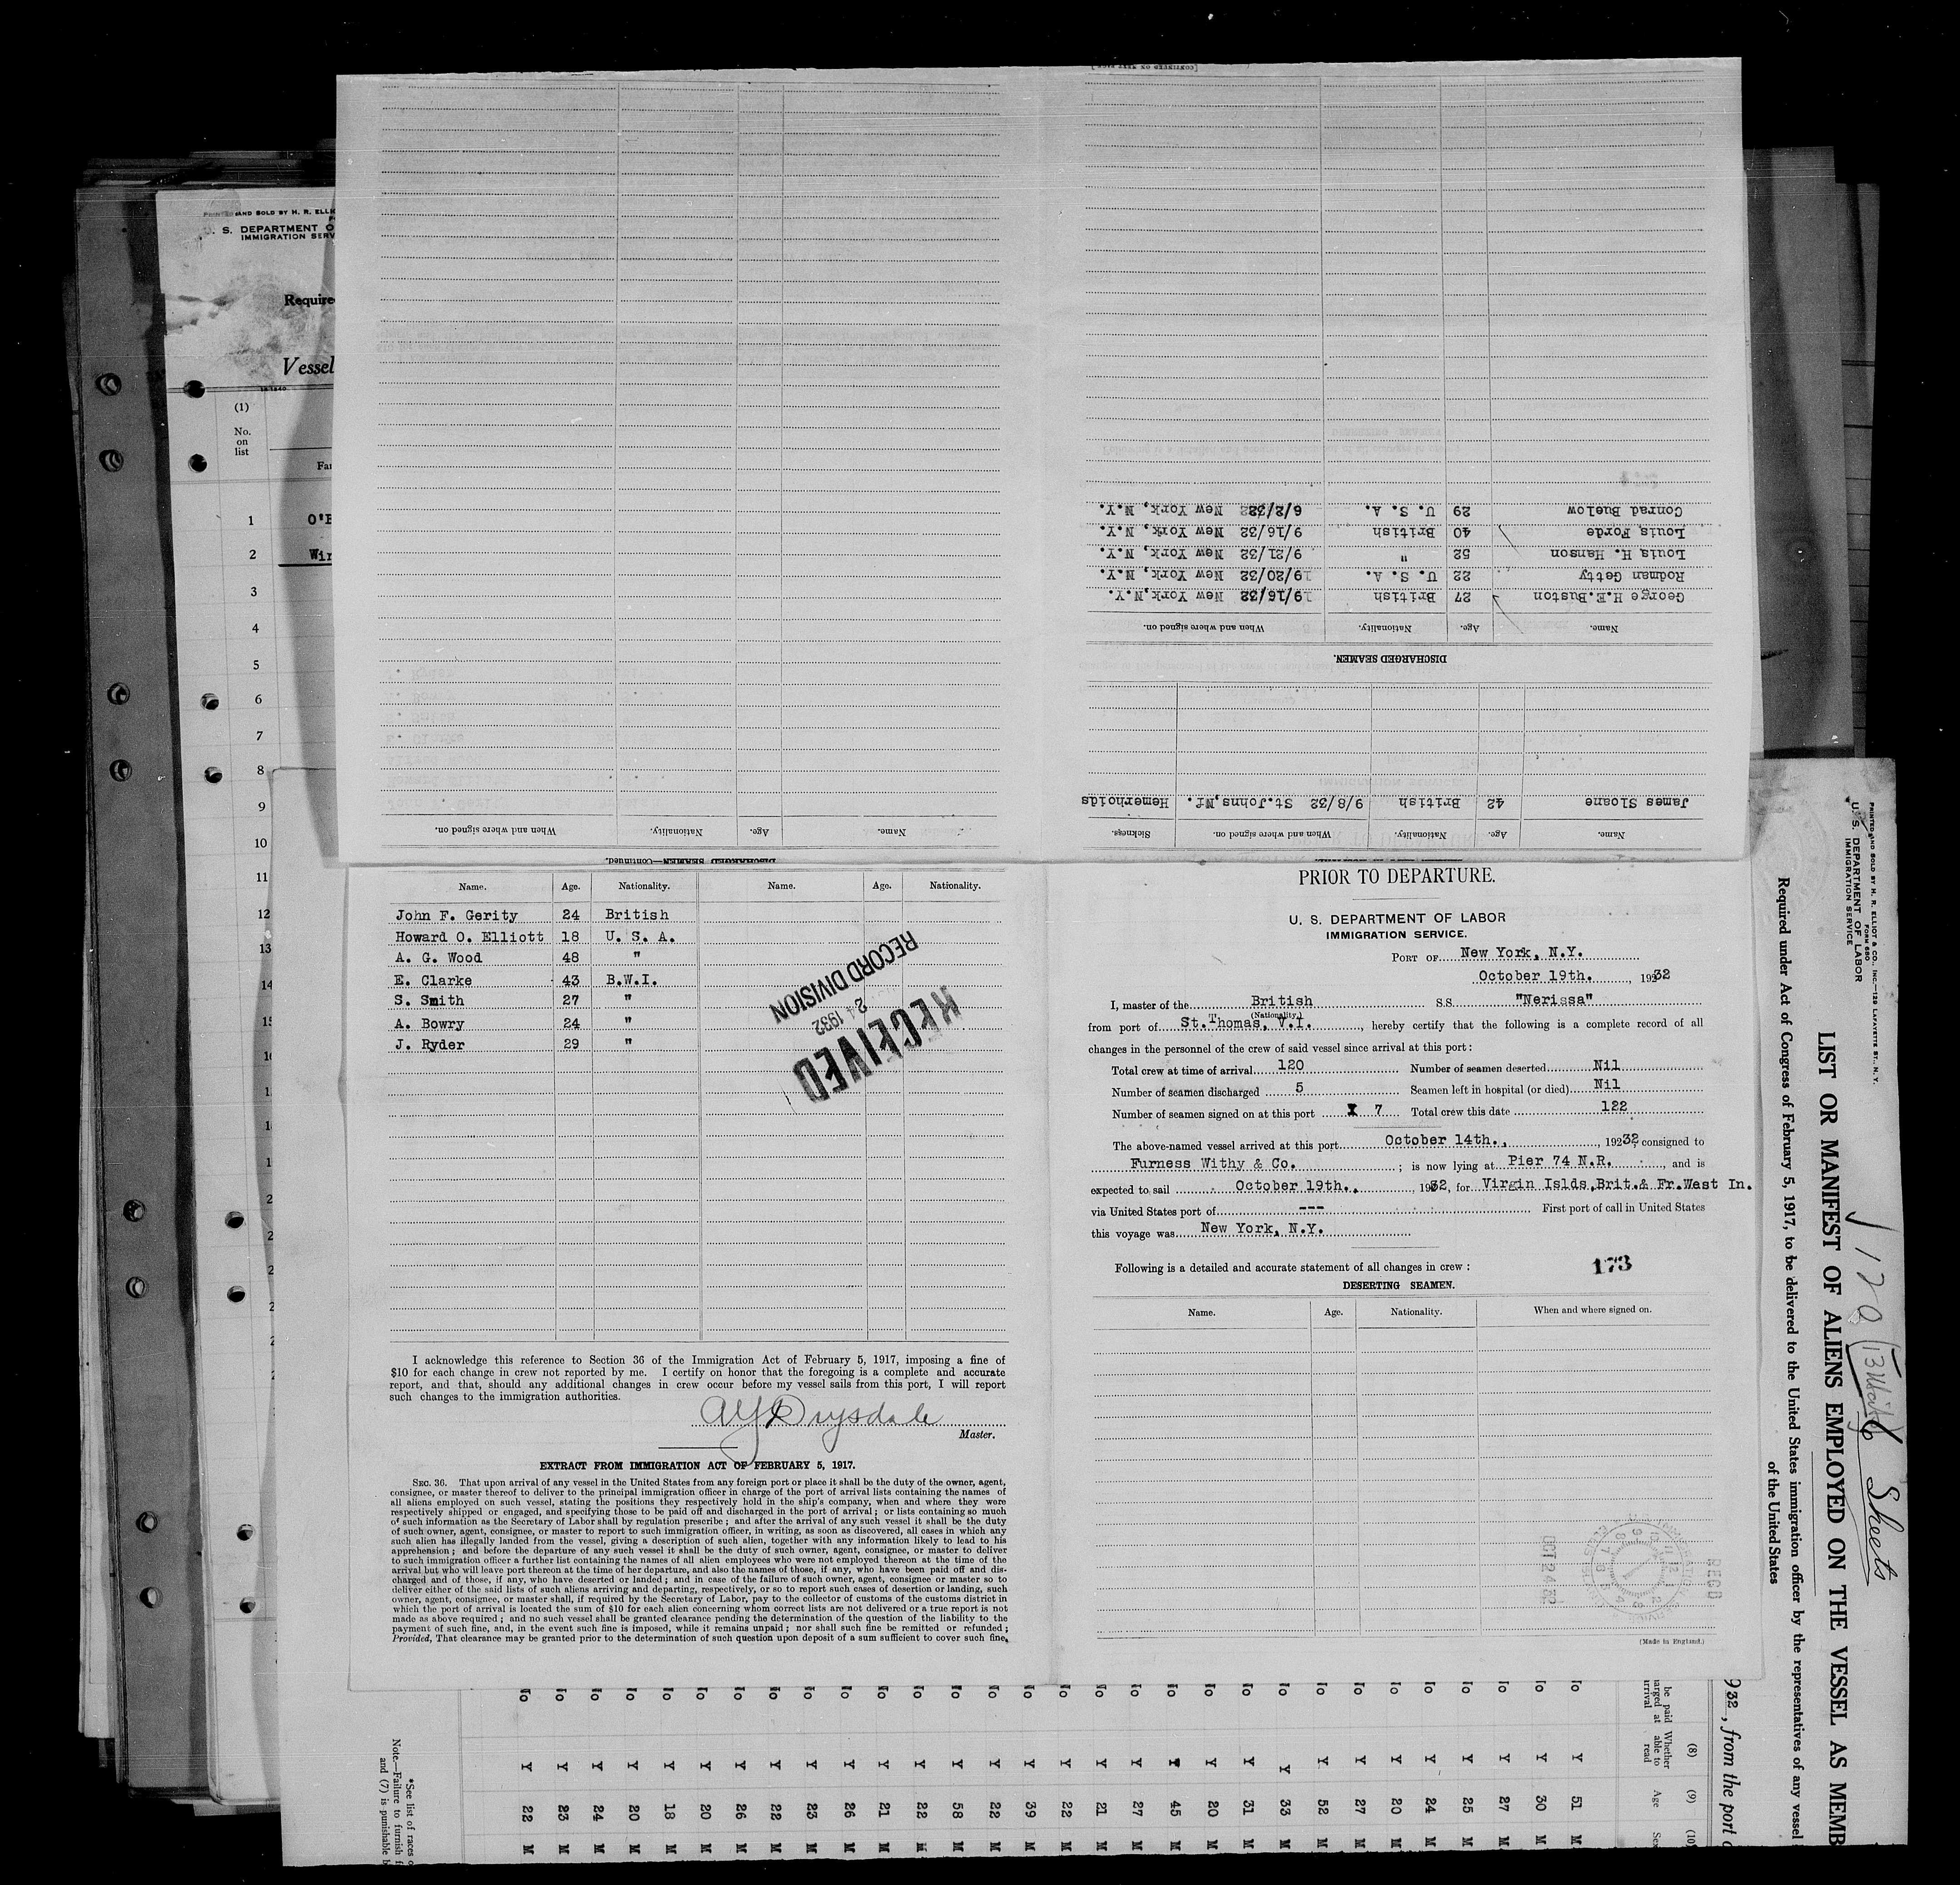 PRIOR TO DEPARTURE.
U. S. DEPARTMENT OF LABOR
IMMIGRATION SERVICE.
PORT OF New York, N.Y.
October 19th. , 1932
I, master of the British S.S. "Nerissa"
(Nationality.)
from port of St.Thomas, V.I. , hereby certify that the following is a complete record of all
changes in the personnel of the crew of said vessel since arrival at this port:
Total crew at time of arrival 120 Number of seamen deserted Nil
Number of seamen discharged 5 Seamen left in hospital (or died) Nil
Number of seamen signed on at this port 7 Total crew this date 122
The above-named vessel arrived at this port October 14th. , 19232, consigned to
Furness Withy & Co. ; is now lying at Pier 74 N.R. , and is
expected to sail October 19th. , 1932, for Virgin Islds,Brit.& Fr.West In.
via United States port of --- First port of call in United States
this voyage was New York, N.Y.
Following is a detailed and accurate statement of all changes in crew :
173
DESERTING SEAMEN.
Name. Age. Nationality. When and where signed on.
OCT 24 32
RECD
(Made in England.)
Name. Age. Nationality. When and where signed on. Sickness.
James Sloane 42 British 9/8/32 St.Johns,Nf. Hemerhoids
DISCHARGED SEAMEN.
Name. Age. Nationality. When and where signed on.
George H.E.Buston 27 British 9/16/32 New York,N.Y.
Rodman Getty 22 U. S. A. 9/20/32 New York, N.Y.
Louis H. Hanson 52 " 9/21/32 New York, N.Y.
Louis Forde 40 British 9/16/32 New York, N.Y.
Conrad Buelow 29 U. S. A. 6/2/32 New York, N.Y.
[CONTINUED ON NEXT PAGE]
DISCHARGED SEAMEN—Continued.
Name. Age. Nationality. When and where signed on.
Name. Age. Nationality. Name. Age. Nationality.
John F. Gerity 24 British
Howard O. Elliott 18 U. S. A.
A. G. Wood 48 "
E. Clarke 43 B.W.I.
S. Smith 27 "
A. Bowry 24 "
J. Ryder 29 "
RECEIVED
24 1932
RECORD DIVISION
I acknowledge this reference to Section 36 of the Immigration Act of February 5, 1917, imposing a fine of
$10 for each change in crew not reported by me. I certify on honor that the foregoing is a complete and accurate
report, and that, should any additional changes in crew occur before my vessel sails from this port, I will report
such changes to the immigration authorities.
Drysdale
Master.
EXTRACT FROM IMMIGRATION ACT OF FEBRUARY 5, 1917.
SEC. 36. That upon arrival of any vessel in the United States from any foreign port or place it shall be the duty of the owner, agent,
consignee, or master thereof to deliver to the principal immigration officer in charge of the port of arrival lists containing the names of
all aliens employed on such vessel, stating the positions they respectively hold in the ship's company, when and where they were
respectively shipped or engaged, and specifying those to be paid off and discharged in the port of arrival; or lists containing so much
of such information as the Secretary of Labor shall by regulation prescribe; and after the arrival of any such vessel it shall be the duty
of such owner, agent, consignee, or master to report to such immigration officer, in writing, as soon as discovered, all cases in which any
such alien has illegally landed from the vessel, giving a description of such alien, together with any information likely to lead to his
apprehension; and before the departure of any such vessel it shall be the duty of such owner, agent, consignee, or master to deliver
to such immigration officer a further list containing the names of all alien employees who were not employed thereon at the time of the
arrival but who will leave port thereon at the time of her departure, and also the names of those, if any, who have been paid off and dis-
charged and of those, if any, who have deserted or landed; and in case of the failure of such owner, agent, consignee or master so to
deliver either of the said lists of such aliens arriving and departing, respectively, or so to report such cases of desertion or landing, such
owner, agent, consignee, or master, shall, if required by the Secretary of Labor, pay to the collector of customs of the customs district in
which the port of arrival is located the sum of $10 for each alien concerning whom correct lists are not delivered or a true report is not
made as above required; and no such vessel shall be granted clearance pending the determination of the question of the liability to the
payment of such fine, and, in the event such fine is imposed, while it remains unpaid; nor shall such fine be remitted or refunded;
Provided, That clearance may be granted prior to the determination of such question upon deposit of a sum sufficient to cover such fine.
PRINTED AND SOLD BY H. R. ELLIO
U. S. DEPARTMENT O
IMMIGRATION SERV
Require
Vessel
(1)
No.
on
list
Fa
1 O'B
2 Wir
3
4
5
6
7
8
9
10
11
12
13
14
PRINTED AND SOLD BY H. R. ELLIOT & CO., INC.—129 LAFAYETTE ST. N. Y.
FORM 680
U. S. DEPARTMENT OF LABOR
IMMIGRATION SERVICE
LIST OR MANIFEST OF ALIENS EMPLOYED ON THE VESSEL AS MEMB
Required under Act of Congress of February 5, 1917, to be delivered to the United States immigration officer by the representatives of any vessel
of the United States
120
Sheets
932, from the port o
(8) (9) (10)
be paid Whether able to read Age Sex
51 30 27 25 24 20 27 52 33 31 20 45 27 21 22 39 22 58 22 21 26 23 22 26 20 18 20 24 23 22
*See list of races o
Note.—Failure to furnish f
and (7) is punishable b